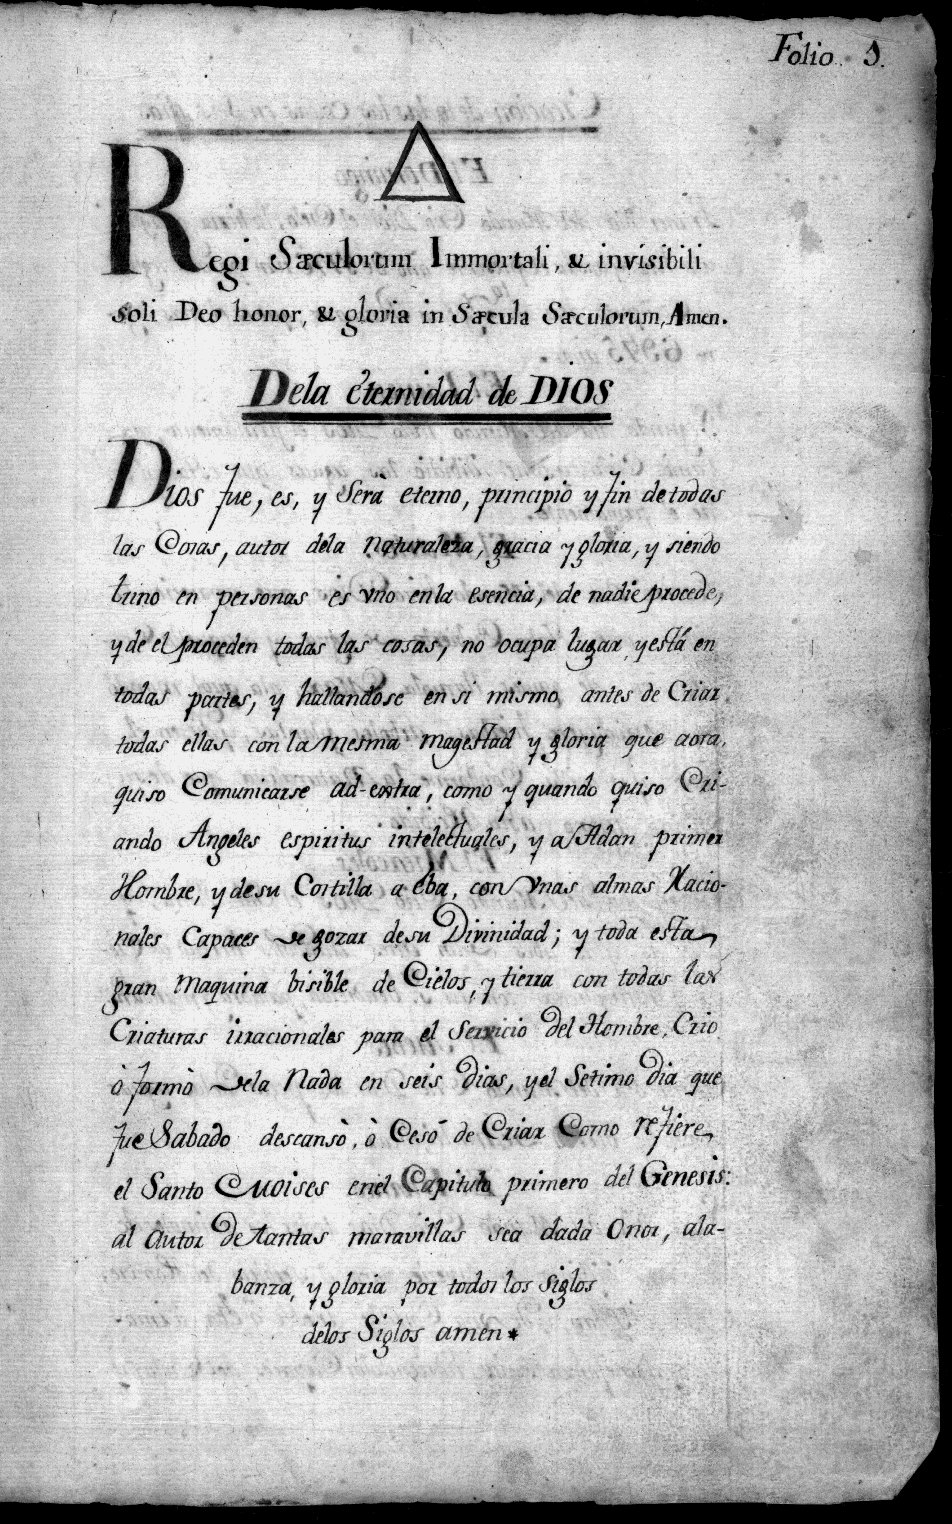 Folio. 1.
Regi Sæculorum Immortali, & invisibili
soli Deo honor, & gloria in Sæcula Sæculorum, Amen.
Dela éternidad de DIOS
Dios fue, es, y Serà eterno, principio y fin de todas
las Cosas, autor dela naturaleza, gracia y gloria, y siendo
trino en personas es vno enla esencia, de nadie procede,
y de el proceden todas las cosas, no ocupa lugar, y está en
todas partes, y hallandose en si mismo antes de Criar
todas ellas con la mesma magestad y gloria que aora,
quiso Comunicarse ad-extra, como y quando quiso Cri-
ando Angeles espiritus intelectuales, y a Adan primer
Hombre, y de su Costilla a Eba, con vnas almas Racio-
nales Capaces de gozar de su Divinidad; y toda esta
gran maquina bisible de Cielos, y tierra con todas las
Criaturas irracionales para el Servicio del Hombre, Crio
ò formò dela Nada en seis dias, y el Setimo dia que
fue Sabado descansò, ò Cesó de Criar Como refiere
el Santo Moises enel Capitulo primero del Genesis:
al Autor de tantas maravillas sea dada Onor, ala-
banza, y gloria por todos los siglos
delos Siglos amen*